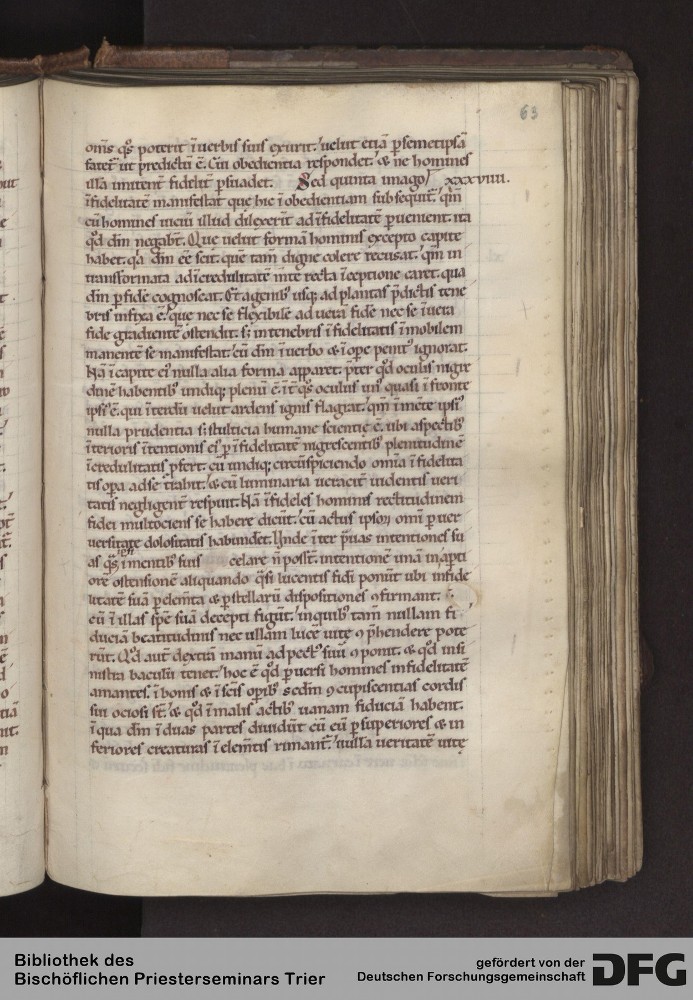 63
om̄s q̄s poterit ī uerbis suis exurit. uelut etiā p̄ semetipsā
fatet̄ ut predictū ē. Cui obedientia respondet. & ne homines
illā imitent̄ fidelit̄ p̄suadet. Sed quinta imago xxxviiii.
īfidelitatē manifestat que hic īobedientiam subsequit̄. qm̄
cū homines uiciū illud dilexerīt ad īfidelitatē p̄uenient. ita
qđ dm̄ negabt̄. Que uelut formā hominis excepto capite
habet. q̄a dm̄ eē scit. quē tam̄ digne colere recusat. qm̄ in
transformata ad īcredulitatē mte recta īceptione caret. qua
dm̄ p̄ fidē cognoscat. Et a genib; usq; ad plantas p̄dictis tene
bris infixa ē. que nec se flexibilē ad uerā fidē nec se ī uera
fide gradientē ostendit. s; in tenebris īfidelitatis īmobilem
manentē se manifestat. cū dm̄ ī uerbo & ī ope penit; ignorat.
Nā ī capite ei; nulla alia forma apparet. p̄ter qđ oculis nigre
dinē habentib; undiq; plenū ē. īt q̄s oculus un; quasi ī fronte
ipsi; ē. qui īterdū uelut ardens ignis flagrat. qm̄ ī mēte ipsi;
nulla prudentia s; stulticia humane scientię ē. ubi aspectib;
īterioris ītentionis ei; p̄ īfidelitatē nigrescentib; plenitudinē
īcredulitatis p̄fert. cū undiq; circūspiciendo omīa īfidelita
tis opa ad se trahit. & cū luminaria ueracit̄ uidentis ueri
tatis negligent̄ respuit. Nā īfideles homines rectitudinem
fidei multociens se habere dicūt. cū actus ipsoꝝ omī puer
uersitate dolositatis habundet. Unde īter p̄uas intentiones su
as q̄s ī mentib; suis celare n̄ posst̄. intentionē unā in apti
ore ostensionē aliquando q̄si lucentis fidī ponūt ubi infide
litatē suā p̄ elemta & p̄ stellarū dispositiones ꝯfirmant.
cū ī illas spē suā decepti figūt. in quib; tam̄ nullam fi
duciā beatitudinis nec ullam lucē uitę ꝯp̄hendere pote
rūt. Qđ aut̄ dextrā manū ad pect; suū ꝯponit. & qđ in si
nistra baculū tenet. hoc ē qđ p̄uersi homines infidelitatē
amantes. ī bonis & ī scīs opib; scdm̄ ꝯcupiscentias cordis
sui ociosi st̄. & qđ ī malis actib; uanam fiduciā habent.
ī qua dm̄ ī duas partes diuidūt cū eū p̄ superiores & in
feriores creaturas ī elemtis rimant̄. nulla ueritatē uitę
Bibliothek des
Bischöflichen Priesterseminars Trier
gefördert von der
Deutschen Forschungsgemeinschaft
DFG